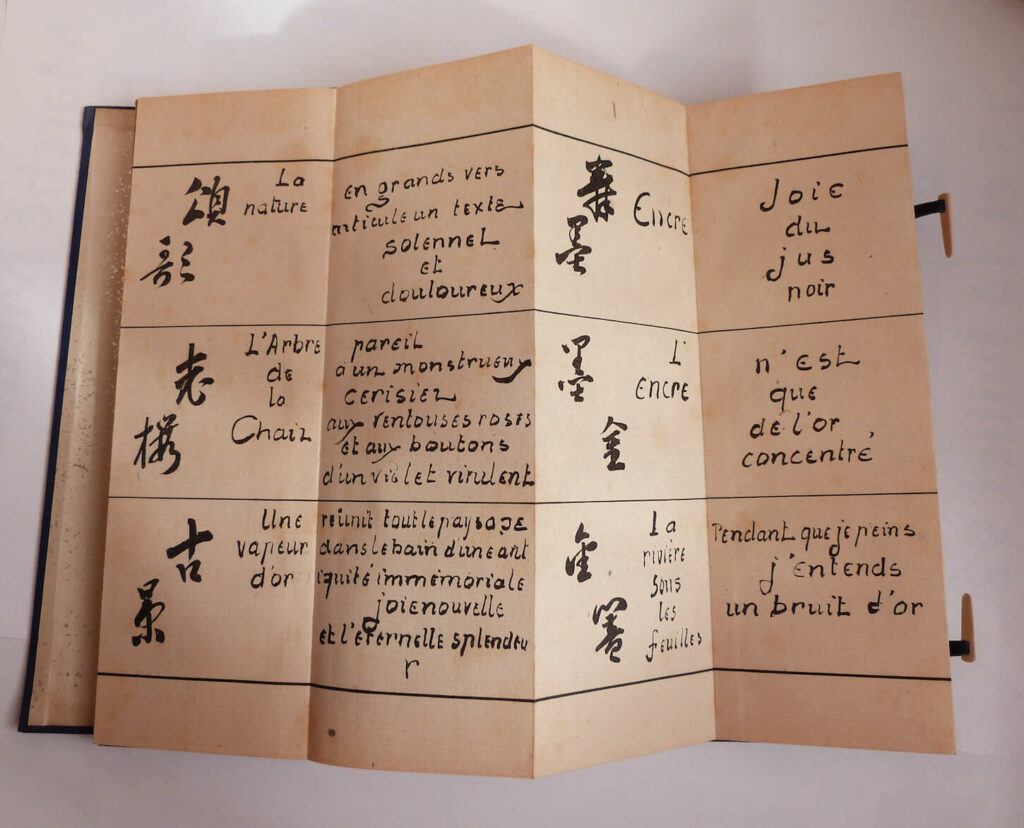 頌
La
nature
en grands vers
articule un texte
solennel
et
douloureux
老
櫻
L'Arbre
de
la
Chair
pareil
à un monstrueux
cerisier
aux ventouses roses
et aux boutons
d'un violet virulent
古
景
Une
vapeur
d'or
réunit tout le paysage
dans le bain d'une ant
iquité immémoriale
joie nouvelle
et l'éternelle splendeu
r
墨
Encre
Joie
du
jus
noir
墨
金
L'
encre
n'est
que
de l'or
concentré
金
La
rivière
sous
les
feuilles
Pendant que je peins
j'entends
un bruit d'or